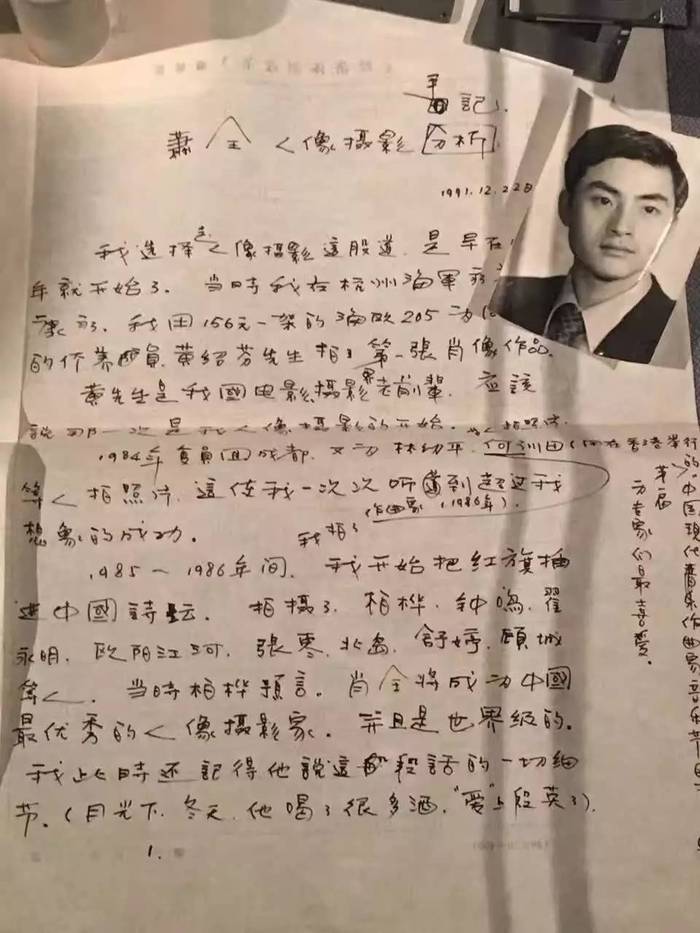 手記
蕭全人像攝影分析
1991.12.22日
我选择人像攝影這股道,是早在
年就开始了.當時我在杭州海軍
我用156元一架的海欧205为
的 黄紹芬先生拍了第一張肖像作品.
黄先生是我國电影攝影界老前輩.应該
說那一次是我人像攝影的开始.
1984年 回成都.又为林幼平.何训田(
等人拍照片.這使我一次次听到超过我
作曲家(1986年).
想象的成功.
我拍了
1985~1986年间.我开始把红旗插
进中國詩坛.拍攝了.柏桦.钟鳴.翟
永明.欧阳江河.張枣.北岛.舒婷.顾城
等人.當時柏桦預言.肖全将成为中國
最优秀的人像攝影家.并且是世界级的.
我此時还記得他說這段話的一切细
节.(月光下.冬天.他喝了很多酒."爱"上段英了).
1.
第一届
的"中国现代 作曲家音乐节
为专家们最喜爱。